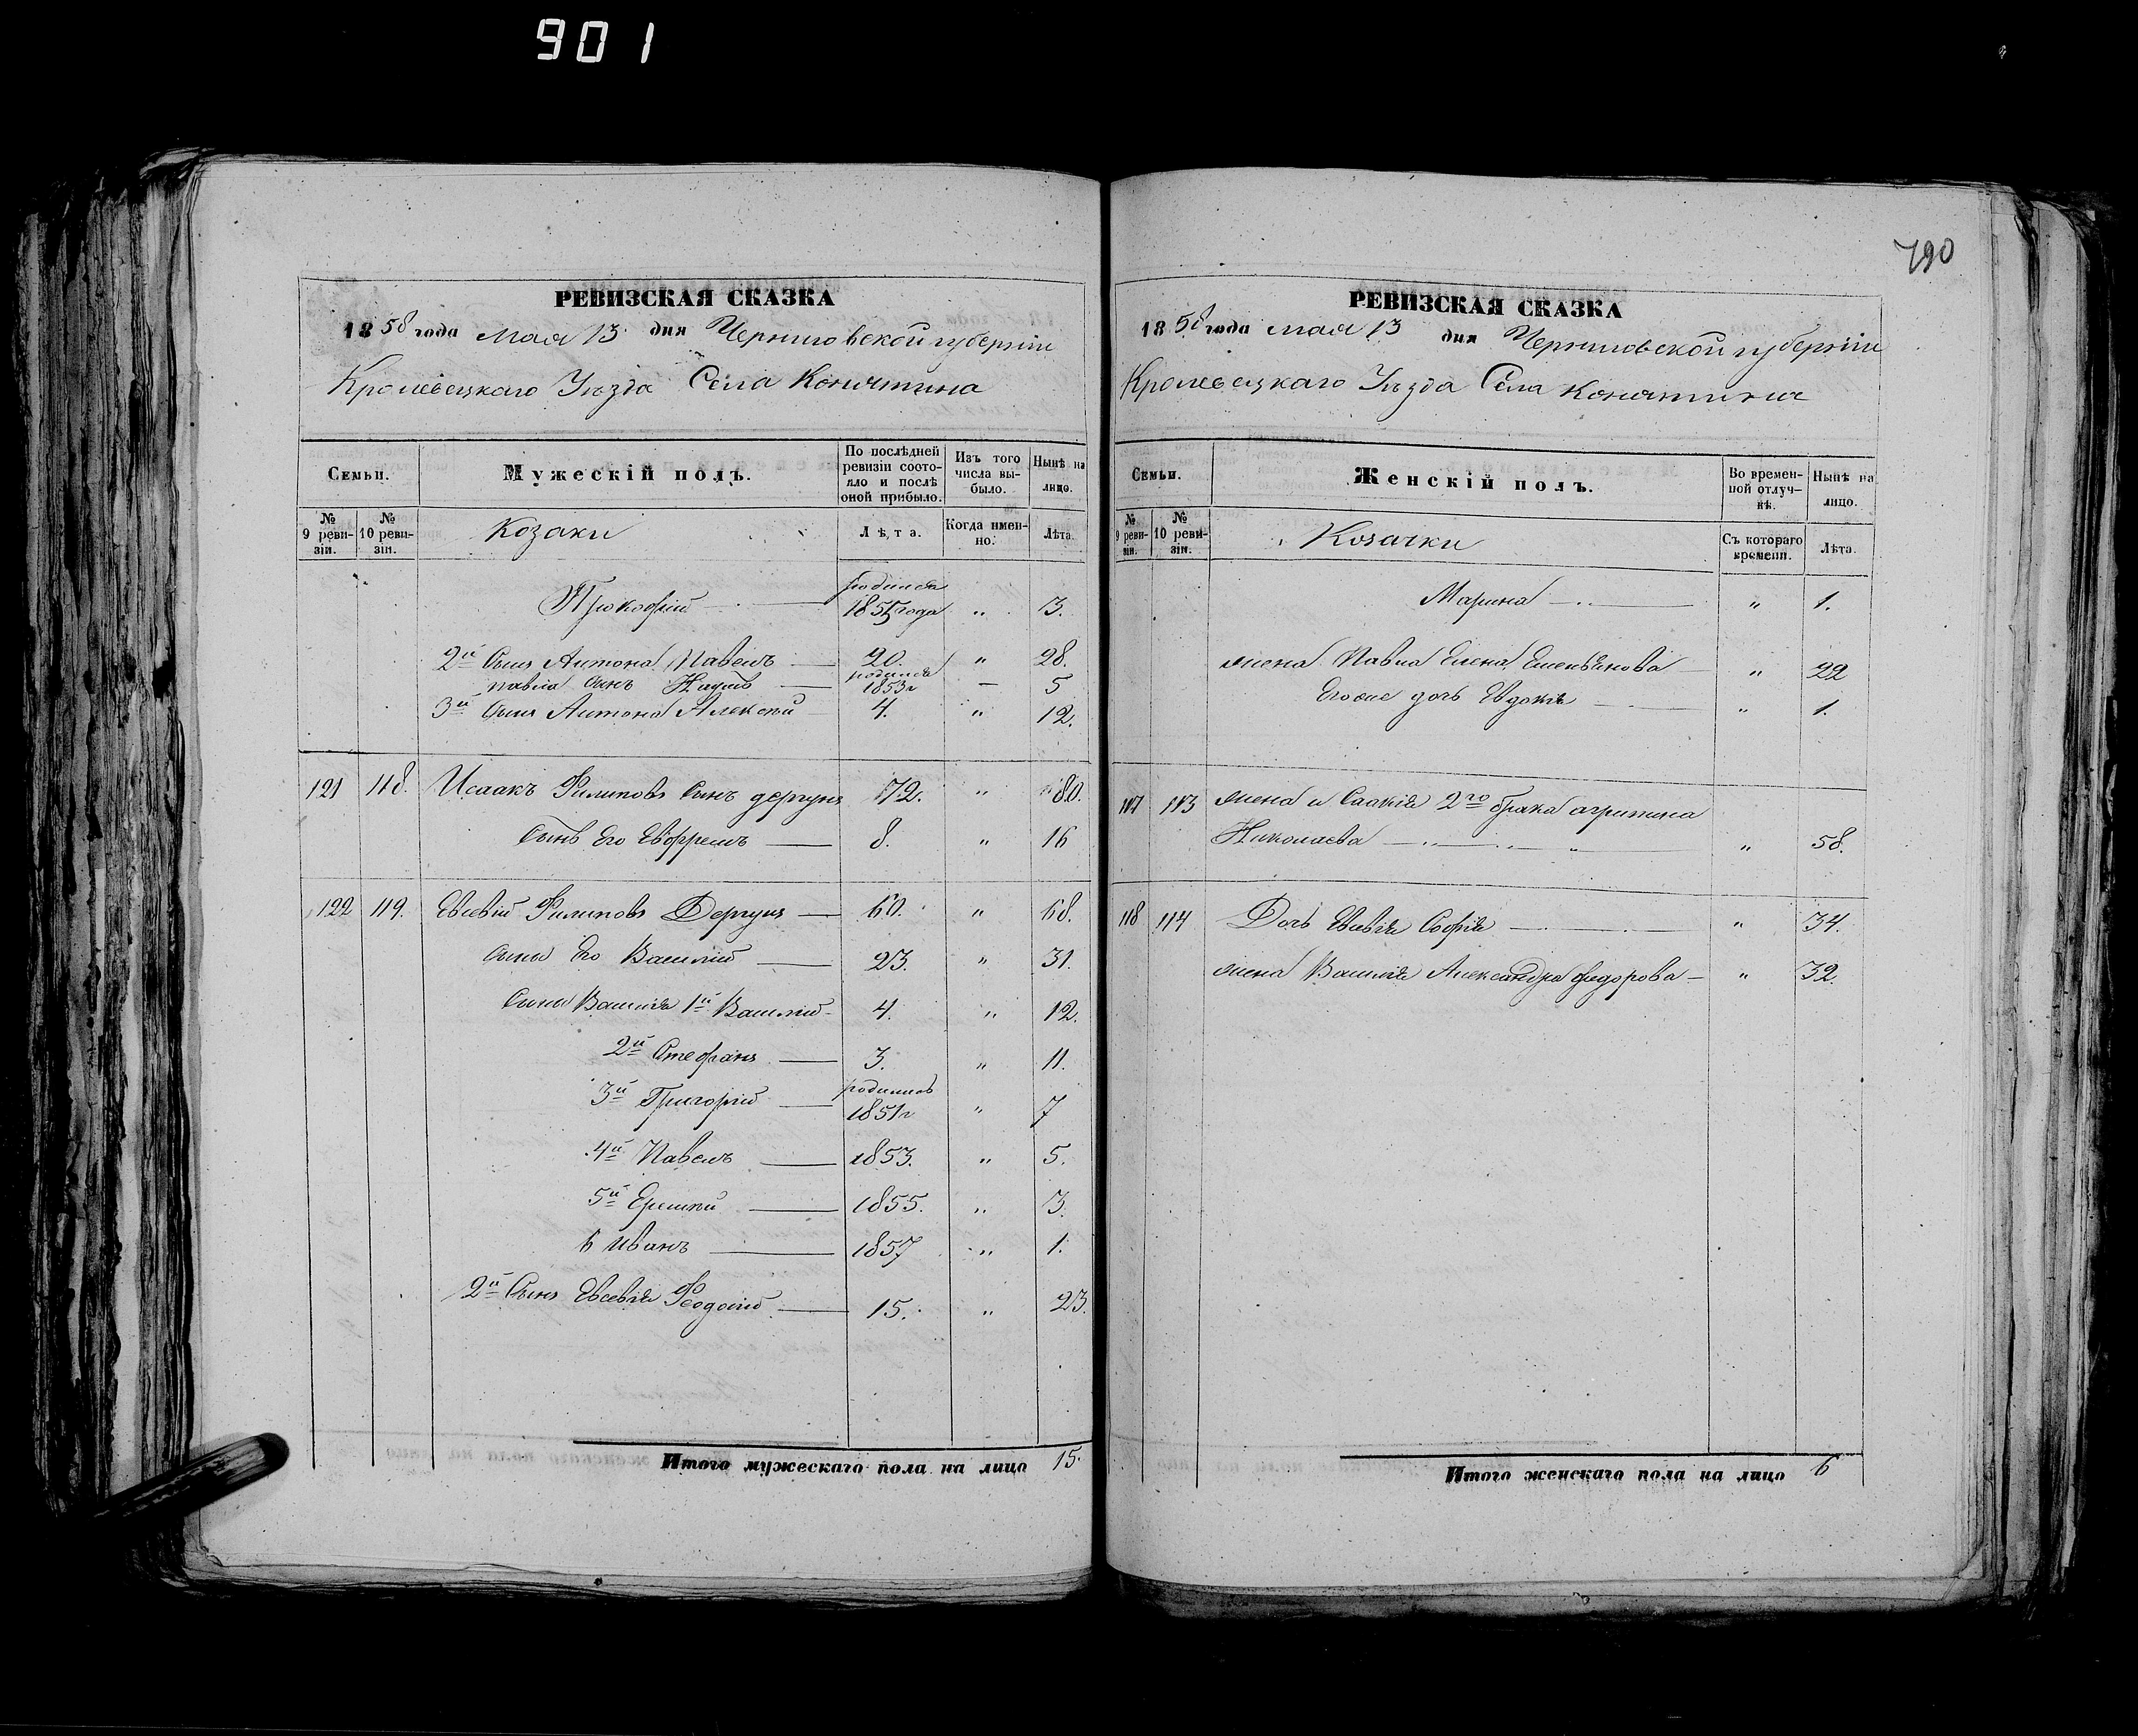 901
790
РЕВИЗСКАЯ СКАЗКА
1858 года мая 13 дня Черниговской губернии
Кролевецкаго Уѣзда Села Конятина
Семьи.
Мужескій полъ.
По послѣдней ревизіи состояло и послѣ оной прибыло.
Изъ того числа выбыло.
Нынѣ на лицо.
№ 9 ревизіи.
№ 10 ревизіи.
Козаки
Лѣта.
Когда именно.
Лѣта.
Прокофій родился 1855 года „ 3.
2й Сынъ Антона Павелъ 20. „ 28.
павла сынъ Наумъ родился 1853г — 5
3й Сынъ Антона Алексѣй 4. „ 12.
121 118. Исаакъ Филиповъ Сынъ дергунъ 72. „ 80.
Сынъ Его Евфремъ 8. „ 16
122 119. Евсевій Филиповъ Дергунъ 60. „ 68.
сынъ Его Василій 23. „ 31.
Сыны Василія 1й Василій 4. „ 12.
2й Стефанъ 3. „ 11.
3й Григорій родился 1851г „ 7
4й Павелъ 1853. „ 5.
5й 1855. „ 3.
6 Иванъ 1857 „ 1.
2й Сынъ Евсевія Феодосій 15. „ 23.
Итого мужескаго пола на лицо 15.
РЕВИЗСКАЯ СКАЗКА
1858 года мая 13 дня Черниговской губернии
Кролевецкаго Уѣзда Села Конятина
Семьи.
Женскій полъ.
Во временной отлучкѣ.
Нынѣ на лицо.
№ 9 ревизіи.
№ 10 ревизіи.
Козачки
Съ котораго времени.
Лѣта.
Марина „ 1.
жена Павла Елена Емельянова „ 22
Его же дочь Евдокія „ 1.
117 113 жена и Саакія 2го брака агрипина
Николаева „ 58.
118 114 Дочь Евсевія Софія „ 34.
жена Василія Александра федорова „ 32.
Итого женскаго пола на лицо 6